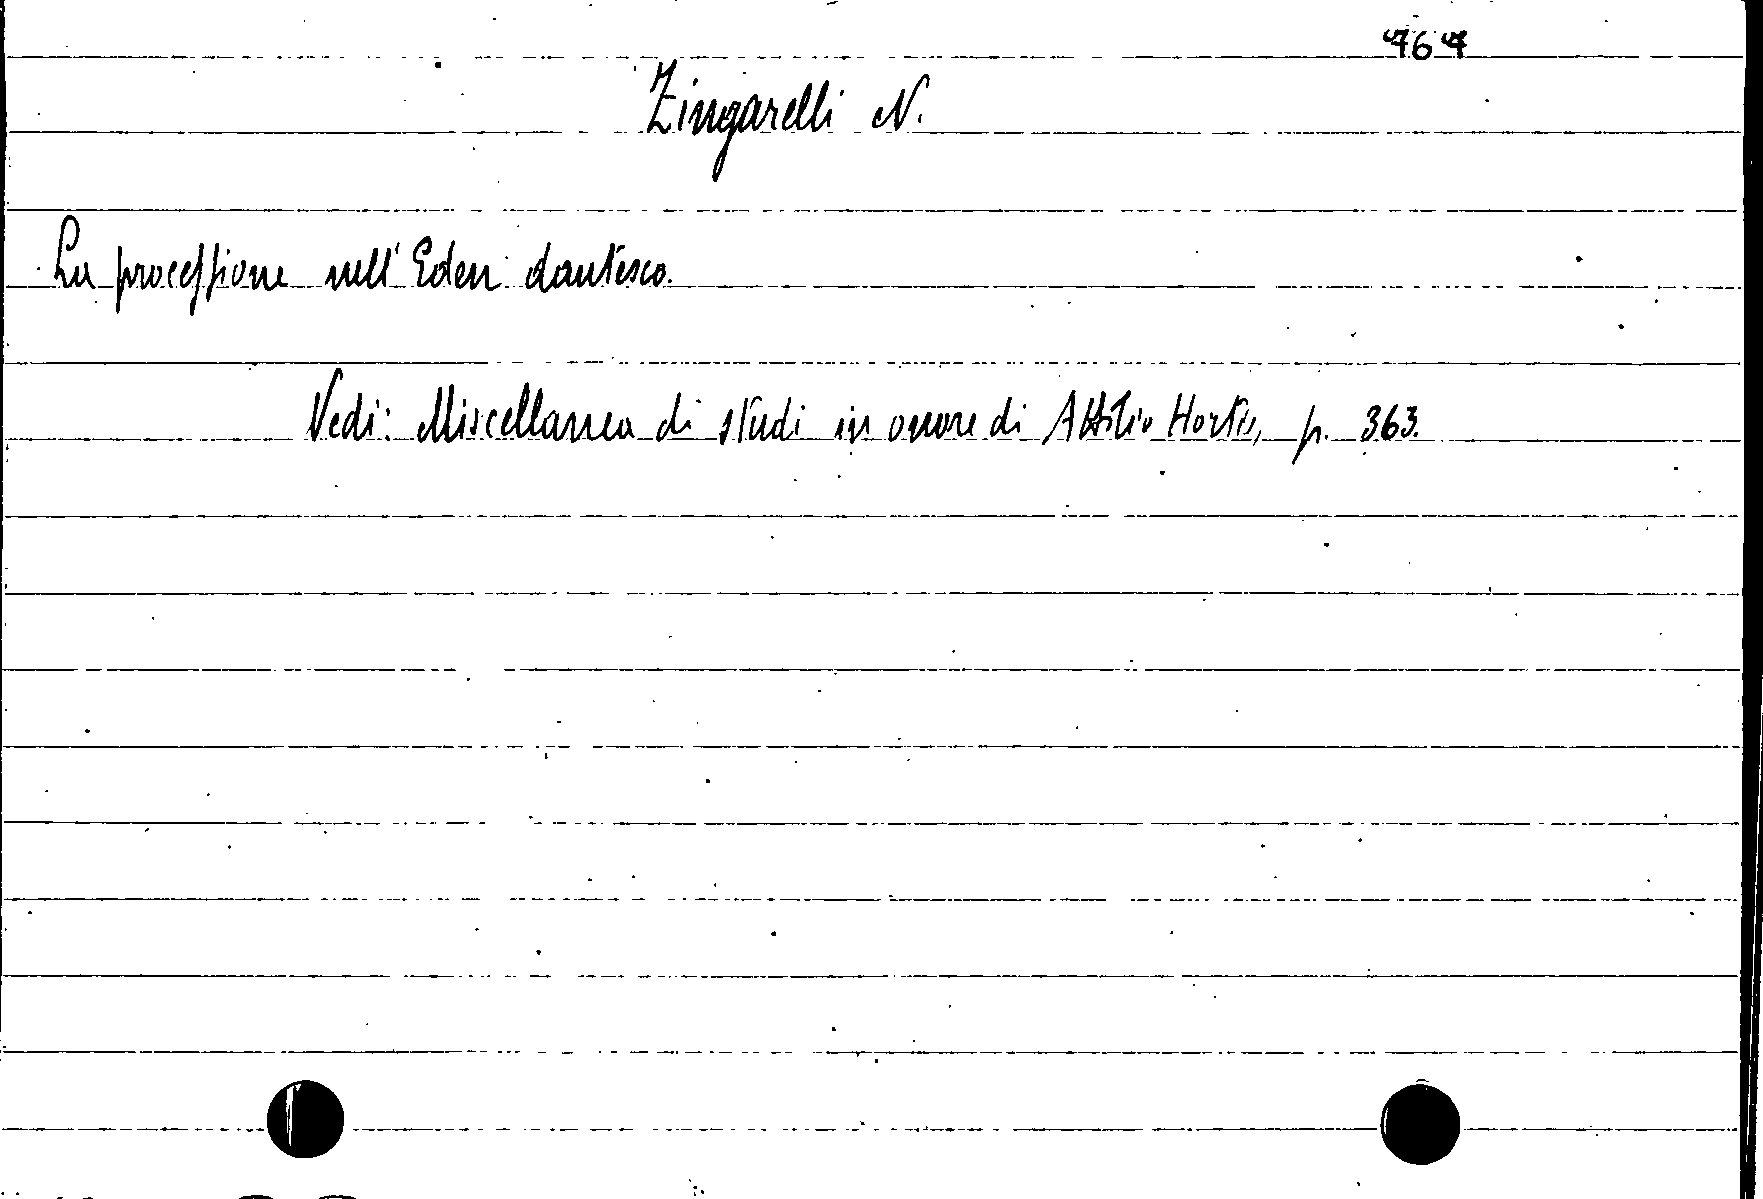 767
Zingarelli N.
La processione nell'Eden dantesco.
Vedi: Miscellanea di studi in onore di Attilio Hortis, p. 363.